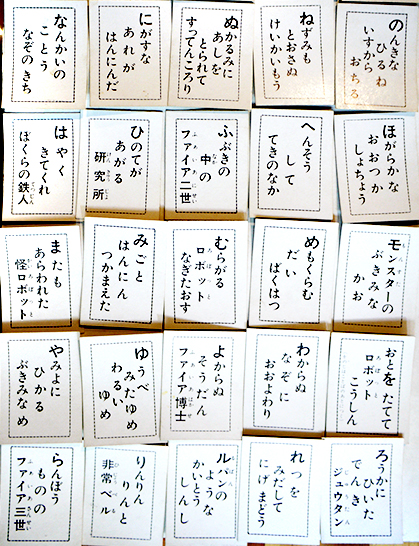 なんかいの
ことう
なぞのきち
にがすな
あれが
はんにんだ
ぬかるみに
あしを
とられて
すってんころり
ねずみも
とおさぬ
けいかいもう
のんきな
ひるね
いすから
おちる
はやく
きてくれ
ぼくらの鉄人
ひのてが
あがる
研究所
ふぶきの
中の
ファイア二世
へんそう
して
てきのなか
ほがらかな
おおつか
しょちょう
またも
あらわれた
怪ロボット
みごと
はんにん
つかまえた
むらがる
ロボット
なぎたおす
めもくらむ
だい
ばくはつ
モンスターの
ぶきみな
かお
やみよに
ひかる
ぶきみなめ
ゆうべ
みたゆめ
わるい
ゆめ
よからぬ
そうだん
ファイア博士
わからぬ
なぞに
おおよわり
おとをたてて
ロボット
こうしん
らんぼう
ものの
ファイア三世
りんりん
りんと
非常ベル
ルパンの
ような
かいとう
しんし
れつを
みだして
にげまどう
ろうかに
ひいた
でんき
ジュウタン